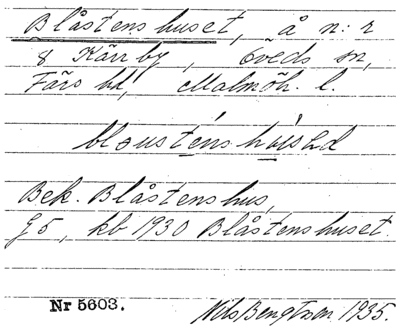 Blåstenshuset, å n:r
8 Kärrby, Öveds sn,
Färs hd, Malmöh. l.
Bek. Blåstenshus,
G5, kb 1930 Blåstenshuset.
Nr 5603.
Nils Bengtson 1935.